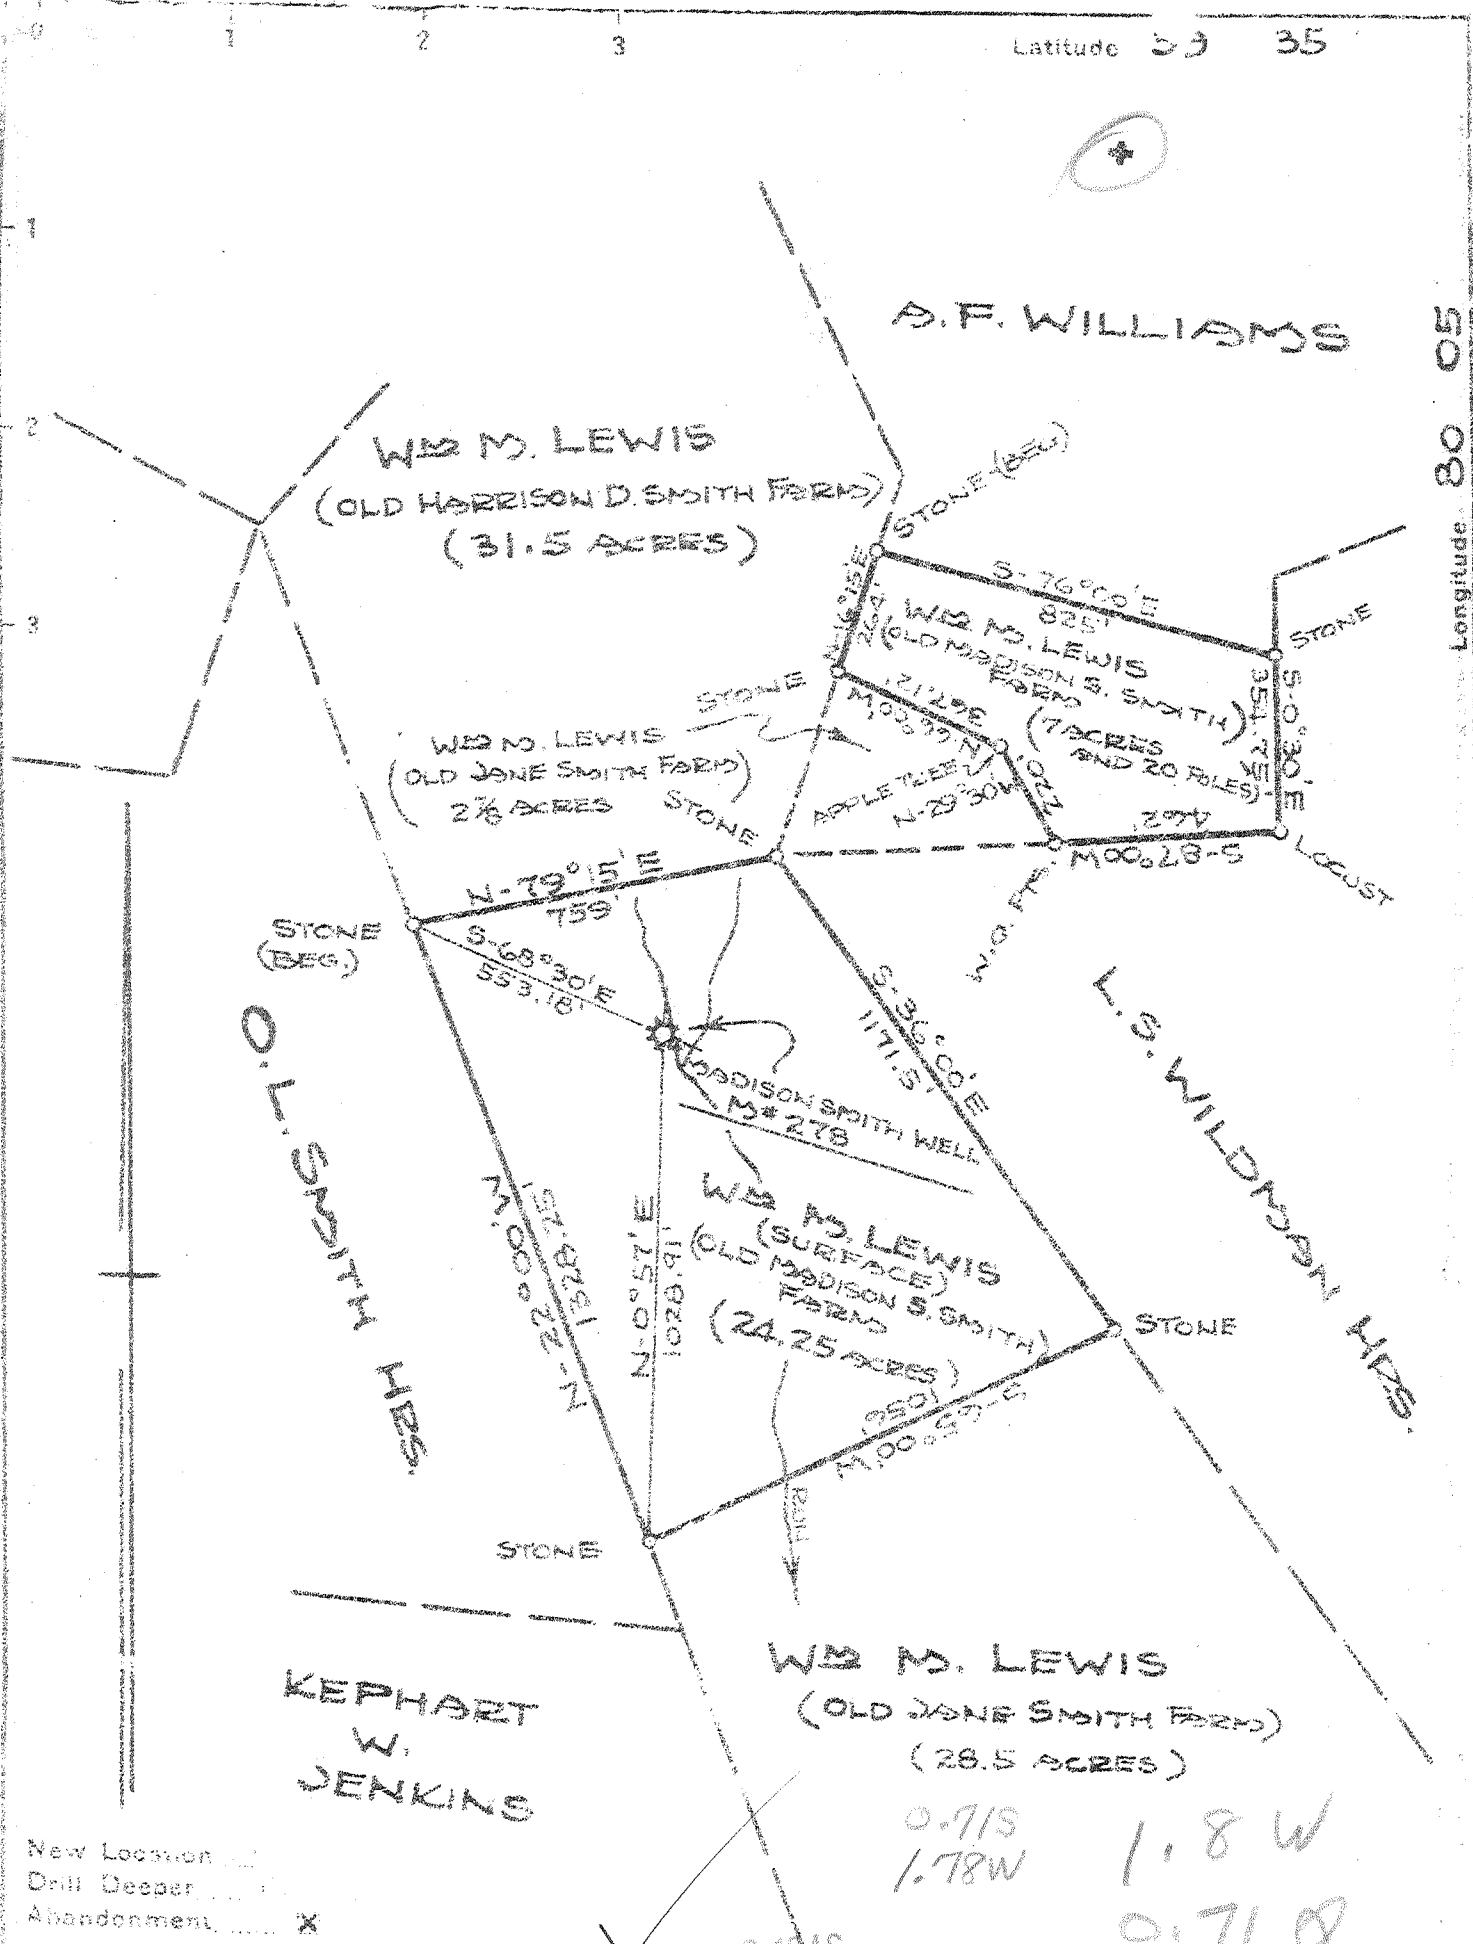 1
2
3
Latitude 39 35
1
2
3
Longitude 80 05
A.F. WILLIAMS
Wm M. LEWIS
(OLD HARRISON D. SMITH FARM)
(31.5 ACRES)
STONE (BEG)
S-76°00'E
825'
STONE
Wm M. LEWIS
(OLD MADISON S. SMITH)
FARM
(7 ACRES
AND 20 POLES)
N-16°15'E
264'
S-0°30'E
354.75'
STONE
N-66°00'W
367.12'
Wm M. LEWIS
(OLD JANE SMITH FARM)
2⅞ ACRES
STONE
APPLE TREE
N-29°30'W
220'
462'
S-87°00'W
LOCUST
W.O. PTR.
N-79°15'E
759'
STONE
(BEG.)
S-68°30'E
553.18'
S-36°00'E
1171.5'
MADISON SMITH WELL
M#278
O.L. SMITH HRS.
L.S. WILDMAN HRS.
N-22°00'W
1328.25'
N-0°57'E
1028.91'
Wm M. LEWIS
(SURFACE)
(OLD MADISON S. SMITH)
FARM
(24.25 ACRES)
STONE
950'
S-65°00'W
RUN
STONE
KEPHART
W.
JENKINS
Wm M. LEWIS
(OLD JANE SMITH FARM)
(28.5 ACRES)
0.71S
1.78W
1.8 W
New Location
Drill Deeper
Abandonment X